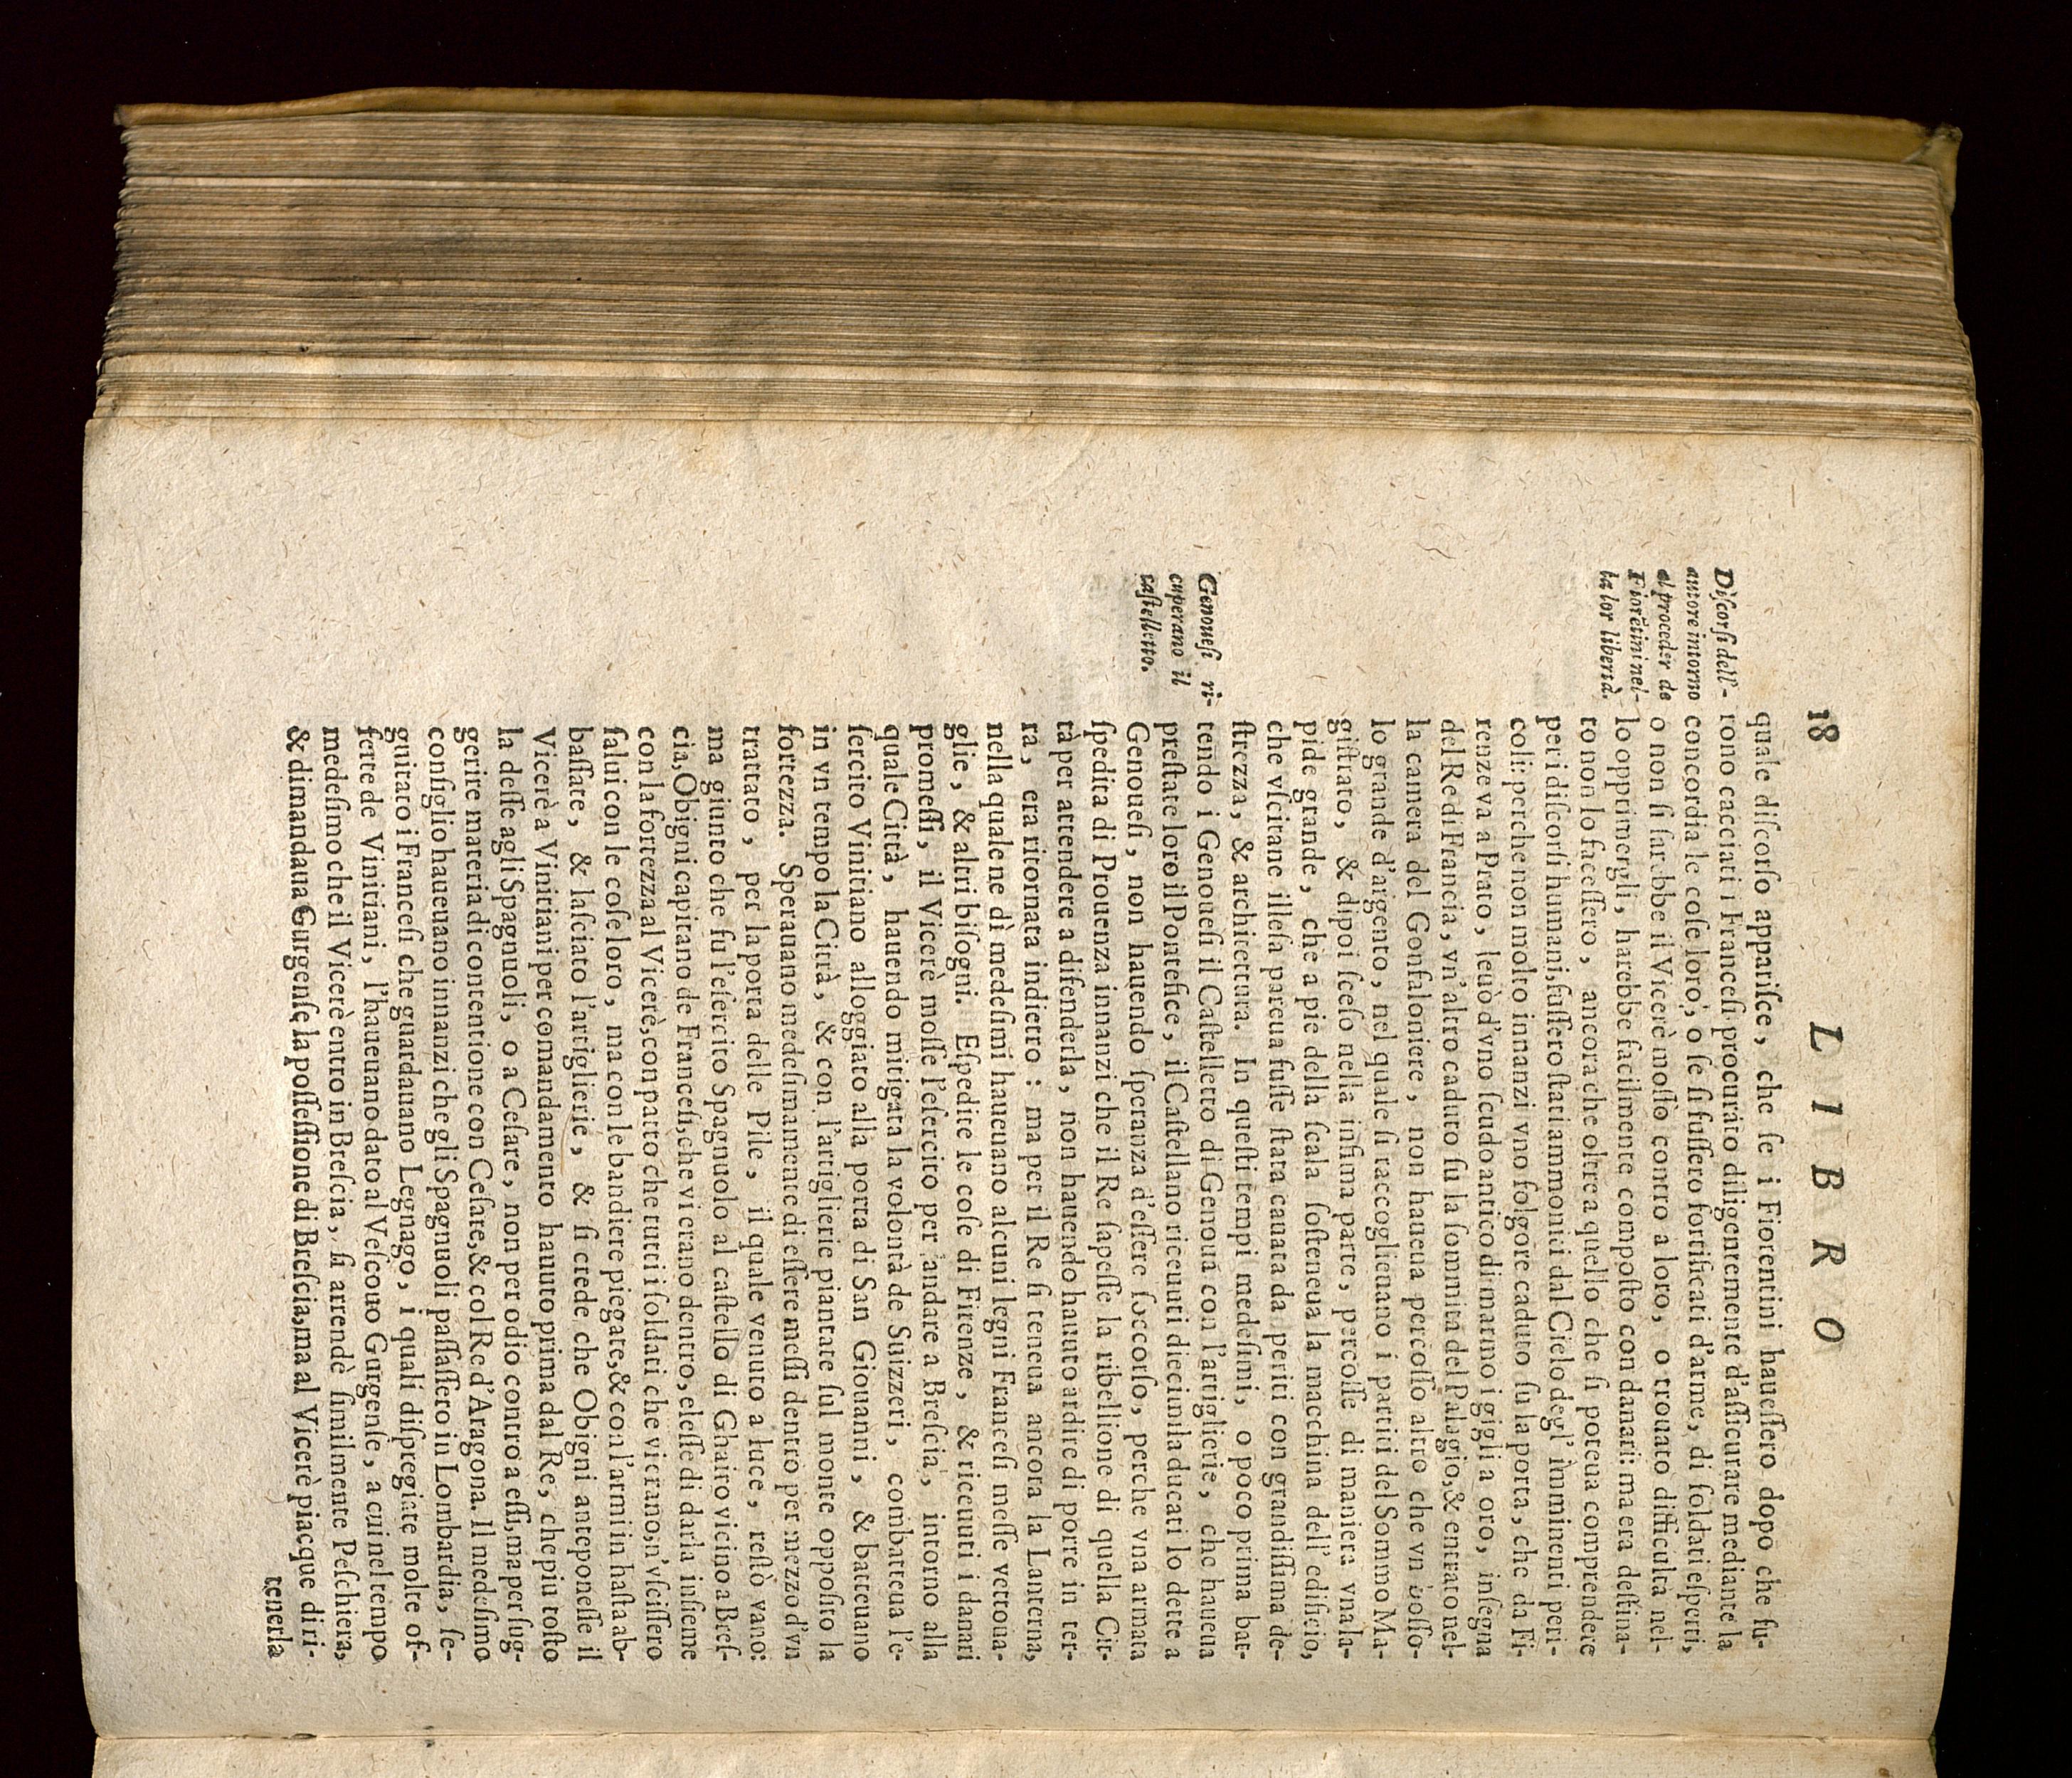 18 LIBRO
quale diſcorſo appariſce, che ſe i Fiorentini haueſſero dopo che fu-
rono cacciati i Franceſi procurato diligentemente d'aſſicurare mediante la
concordia le coſe loro, o ſe ſi fuſſero fortificati d'arme, di ſoldati eſperti,
o non ſi ſarebbe il Vicerè moſſo contro a loro, o trouato difficultà nel-
lo opprimergli, harebbe facilmente compoſto con danari: ma era deſtina-
to non lo faceſſero, ancora che oltre a quello che ſi poteua comprendere
per i diſcorſi humani, fuſſero ſtati ammoniti dal Cielo degl' imminenti peri-
coli: perche non molto innanzi vno folgore caduto ſu la porta, che da Fi-
renze va a Prato, leuò d'vno ſcudo antico di marmo i gigli a oro, inſegna
del Re di Francia, vn'altro caduto ſu la ſommità del Palagio, & entrato nel-
la camera del Gonfaloniere, non haueua percoſſo altro che vn boſſo-
lo grande d'argento, nel quale ſi raccoglieuano i partiti del Sommo Ma-
giſtrato, & dipoi ſceſo nella infima parte, percoſſe di maniera vna la-
pide grande, che a piè della ſcala ſoſteneua la macchina dell' edificio,
che vſcitane illeſa pareua fuſſe ſtata cauata da periti con grandiſſima de-
ſtrezza, & architettura. In queſti tempi medeſimi, o poco prima bat-
tendo i Genoueſi il Caſtelletto di Genoua con l'artiglierie, che haueua
preſtate loro il Pontefice, il Caſtellano riceuuti diecimila ducati lo dette a
Genoueſi, non hauendo ſperanza d'eſſere ſoccorſo, perche vna armata
ſpedita di Prouenza innanzi che il Re ſapeſſe la ribellione di quella Cit-
tà per attendere a difenderla, non hauendo hauuto ardire di porre in ter-
ra, era ritornata indietro: ma per il Re ſi teneua ancora la Lanterna,
nella quale ne dì medeſimi haueuano alcuni legni Franceſi meſſe vettoua-
glie, & altri biſogni. Eſpedite le coſe di Firenze, & riceuuti i danari
promeſſi, il Vicerè moſſe l'eſercito per andare a Breſcia, intorno alla
quale Città, hauendo mitigata la volontà de Suizzeri, combatteua l'e-
ſercito Vinitiano alloggiato alla porta di San Giouanni, & batteuano
in vn tempo la Città, & con l'artiglierie piantate ſul monte oppoſito la
fortezza. Sperauano medeſimamente di eſſere meſſi dentro per mezzo d'vn
trattato, per la porta delle Pile, il quale venuto a luce, reſtò vano:
ma giunto che fu l'eſercito Spagnuolo al caſtello di Ghairo vicino a Breſ-
cia, Obignì capitano de Franceſi, che vi erano dentro, eleſſe di darla inſieme
con la fortezza al Vicerè, con patto che tutti i ſoldati che vi erano, n'vſciſſero
ſalui con le coſe loro, ma con le bandiere piegate, & con l'armi in haſta ab-
baſſate, & laſciato l'artiglierie, & ſi crede che Obignì anteponeſſe il
Vicerè a Vinitiani per comandamento hauuto prima dal Re, che più toſto
la deſſe agli Spagnuoli, o a Ceſare, non per odio contro a eſſi, ma per ſug-
gerire materia di contentione con Ceſare, & col Re d'Aragona. Il medeſimo
conſiglio haueuano innanzi che gli Spagnuoli paſſaſſero in Lombardia, ſe-
guitato i Franceſi che guardauano Legnago, i quali diſpregiate molte of-
ferte de Vinitiani, l'haueuano dato al Veſcouo Gurgenſe, a cui nel tempo
medeſimo che il Vicerè entrò in Breſcia, ſi arrendè ſimilmente Peſchiera,
& dimandaua Gurgenſe la poſſeſſione di Breſcia, ma al Vicerè piacque di ri-
tenerla
Diſcorſi dell'-
autore intorno
al proceder de
Fiorẽtini nel-
la lor libertà.
Genoueſi ri-
cuperano il
caſtelletto.